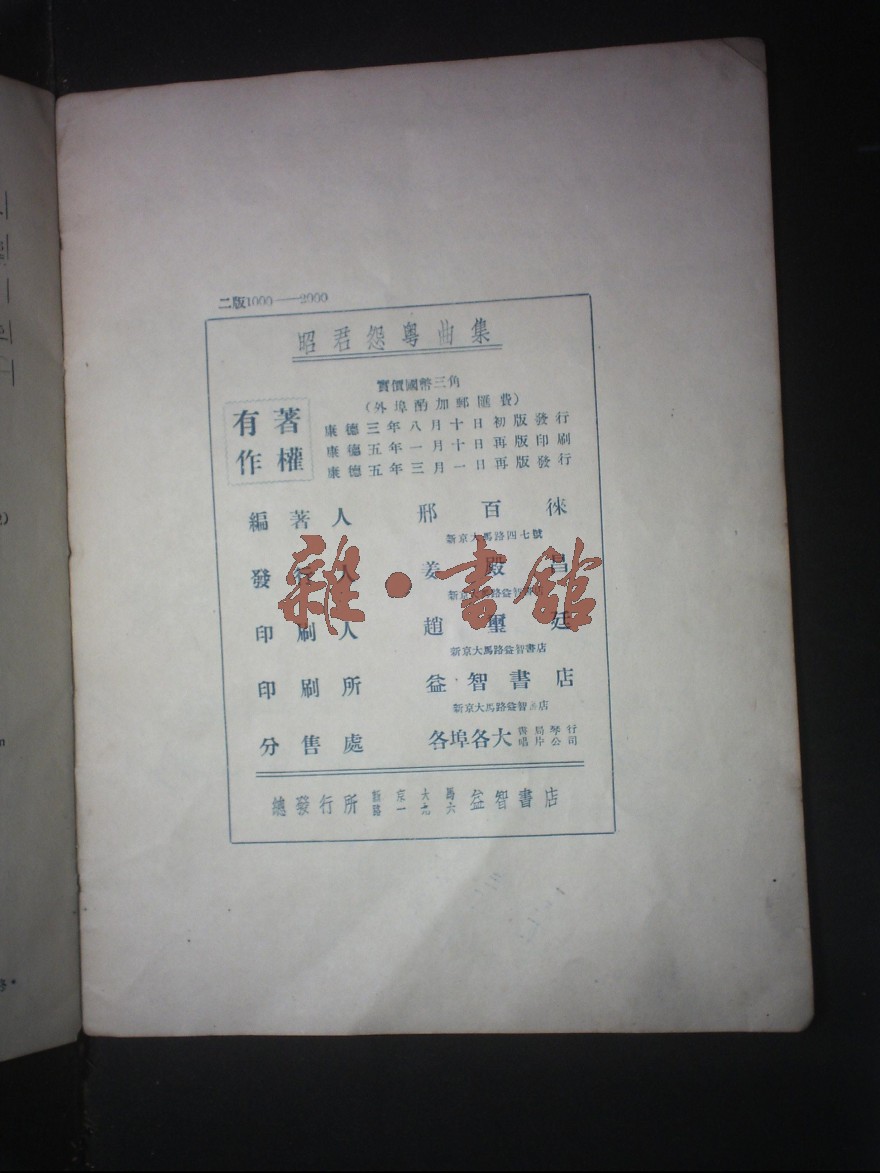 二版1000——2000
昭君怨粵曲集
實價國幣三角
(外埠酌加郵匯費)
著作權有
康德三年八月十日初版發行
康德五年一月十日再版印刷
康德五年三月一日再版發行
編著人 邢百徠
新京大馬路四七號
發行人 姜殿昌
新京大馬路益智書店
印刷人 趙璽廷
新京大馬路益智書店
印刷所 益智書店
新京大馬路益智書店
分售處 各埠各大書局琴行唱片公司
總發行所 新京大馬路一九六 益智書店
雜·書館